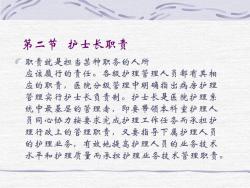 第二节 护士长职责
职责就是担当某种职务的人所
应该履行的责任。各级护理管理人员都有其相
应的职责，医院分级管理中明确指出病房护理
管理实行护士长负责制。护士长是医院护理系
统中最基层的管理者，即要带领本科室护理人
员同心协力按要求完成护理工作任务而承担护
理行政上的管理职责，又要指导下属护理人员
的护理业务，有效地提高护理人员的业务技术
水平和护理质量而承担护理业务技术管理职责。